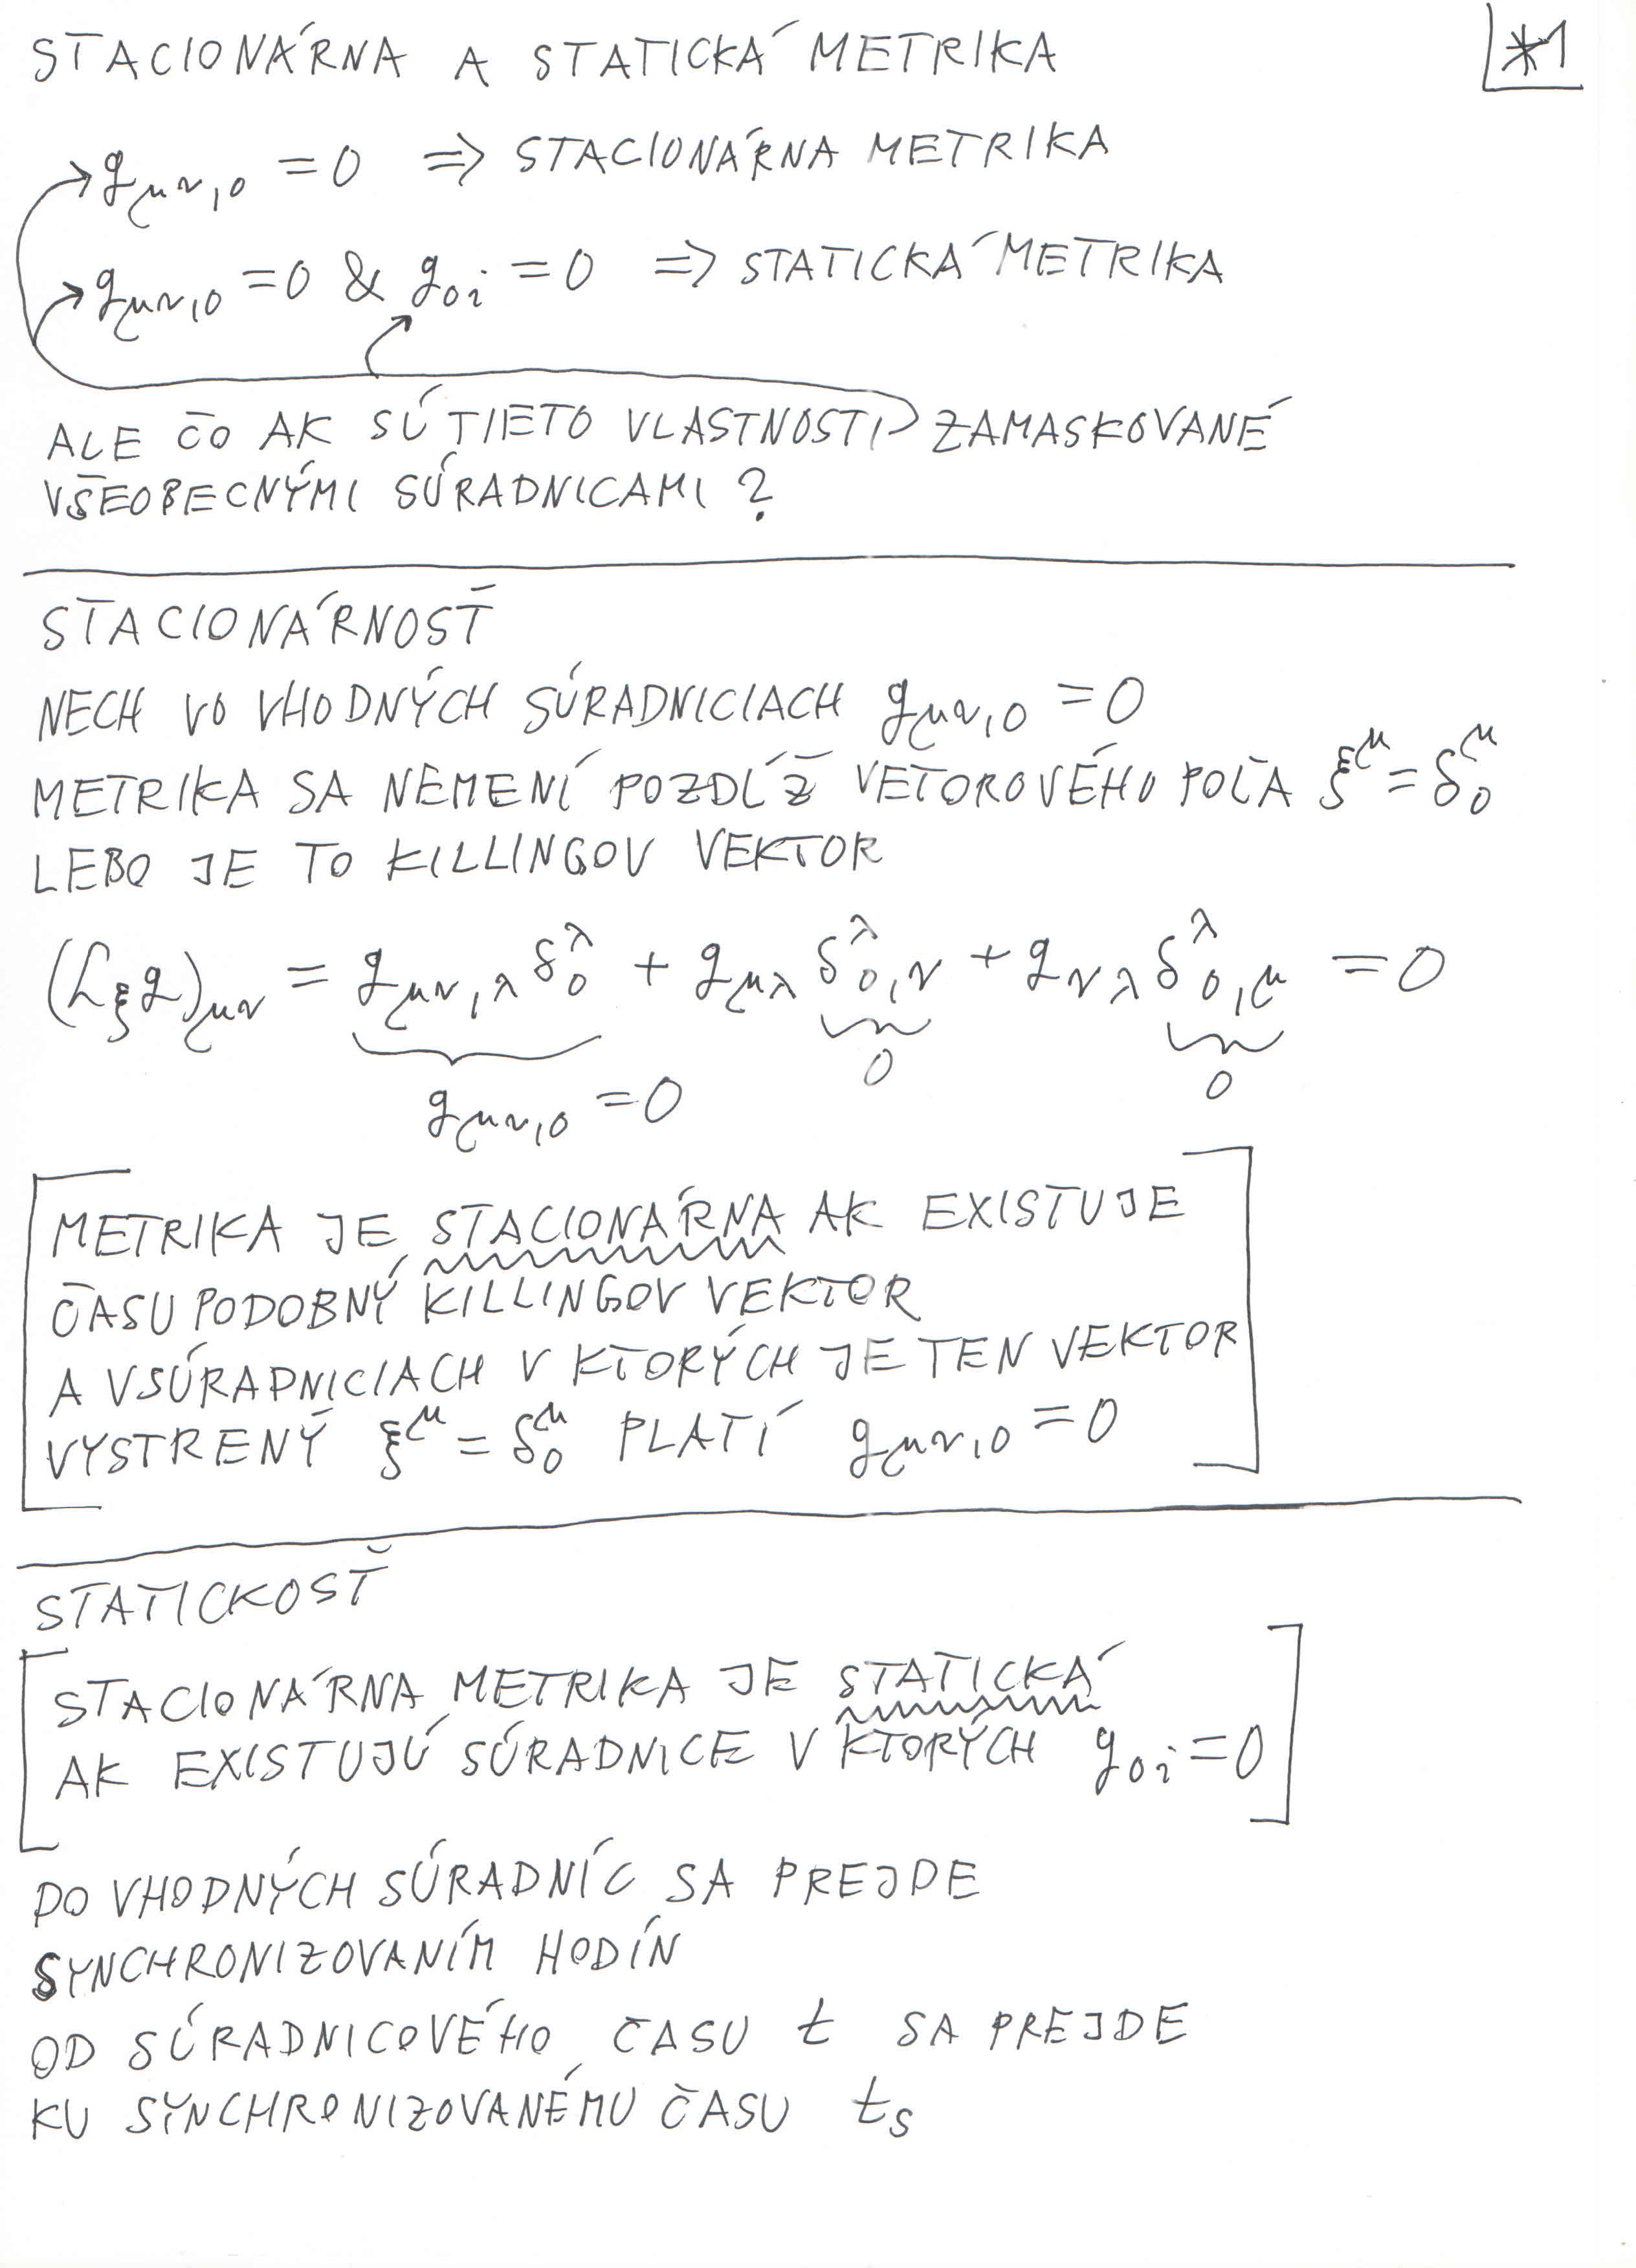 STACIONÁRNA A STATICKÁ METRIKA
*1
g_{μν,0} = 0 ⇒ STACIONÁRNA METRIKA
g_{μν,0} = 0 & g_{0i} = 0 ⇒ STATICKÁ METRIKA
ALE ČO AK SÚ TIETO VLASTNOSTI ZAMASKOVANÉ
VŠEOBECNÝMI SÚRADNICAMI ?
STACIONÁRNOSŤ
NECH VO VHODNÝCH SÚRADNICIACH g_{μν,0} = 0
METRIKA SA NEMENÍ POZDĹŽ VETOROVÉHO POĽA ξ^μ = δ_0^μ
LEBO JE TO KILLINGOV VEKTOR
(L_ξ g)_{μν} = g_{μν,λ} δ_0^λ + g_{μλ} δ^λ_{0,ν} + g_{νλ} δ^λ_{0,μ} = 0
g_{μν,0} = 0 0 0
METRIKA JE STACIONÁRNA AK EXISTUJE
ČASU PODOBNÝ KILLINGOV VEKTOR
A V SÚRADNICIACH V KTORÝCH JE TEN VEKTOR
VYSTRENÝ ξ^μ = δ_0^μ PLATÍ g_{μν,0} = 0
STATICKOSŤ
STACIONÁRNA METRIKA JE STATICKÁ
AK EXISTUJÚ SÚRADNICE V KTORÝCH g_{0i} = 0
DO VHODNÝCH SÚRADNÍC SA PREJDE
SYNCHRONIZOVANÍM HODÍN
OD SÚRADNICOVÉHO ČASU t SA PREJDE
KU SYNCHRONIZOVANÉMU ČASU t_s